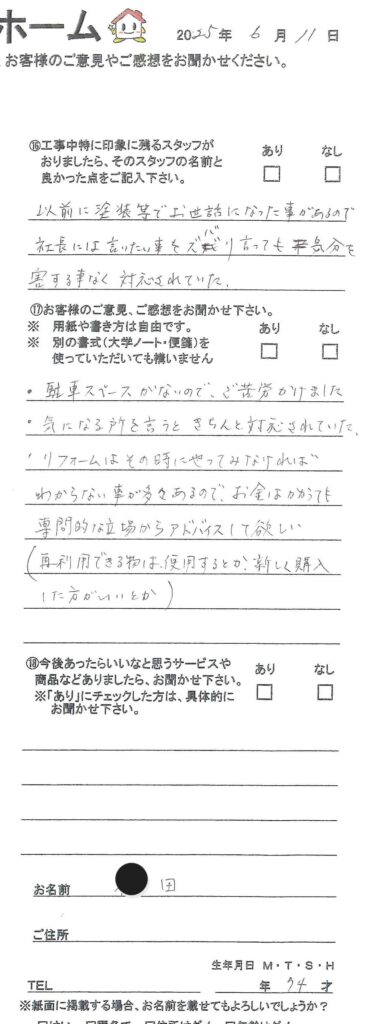 ホーム 2025年 6月 11日
、お客様のご意見やご感想をお聞かせください。
⑯工事中特に印象に残るスタッフが あり なし
おりましたら、そのスタッフの名前と
良かった点をご記入下さい。 □ □
以前に塗装等でお世話になった事があるので
社長には言いたい事をズバり言っても気分を
害する事なく対応されていた。
⑰お客様のご意見、ご感想をお聞かせ下さい。
※ 用紙や書き方は自由です。 あり なし
※ 別の書式(大学ノート・便箋)を
使っていただいても構いません □ □
・駐車スペースがないので、ご苦労かけました
・気になる所を言うときちんと対応されていた。
・リフォームはその時にやってみなければ
わからない事が多々あるので、お金はかかっても
専門的な立場からアドバイスして欲しい
(再利用できる物は、使用するとか、新しく購入
した方がいいとか)
⑱今後あったらいいなと思うサービスや あり なし
商品などありましたら、お聞かせ下さい。
※「あり」にチェックした方は、具体的に □ □
お聞かせ下さい。
お名前 田
ご住所
生年月日 M・T・S・H
TEL 年 74 才
※紙面に掲載する場合、お名前を載せてもよろしいでしょうか?